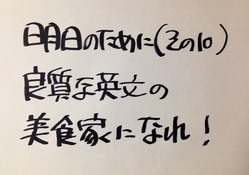 明日のために(その10)
良質な英文の
美食家になれ!